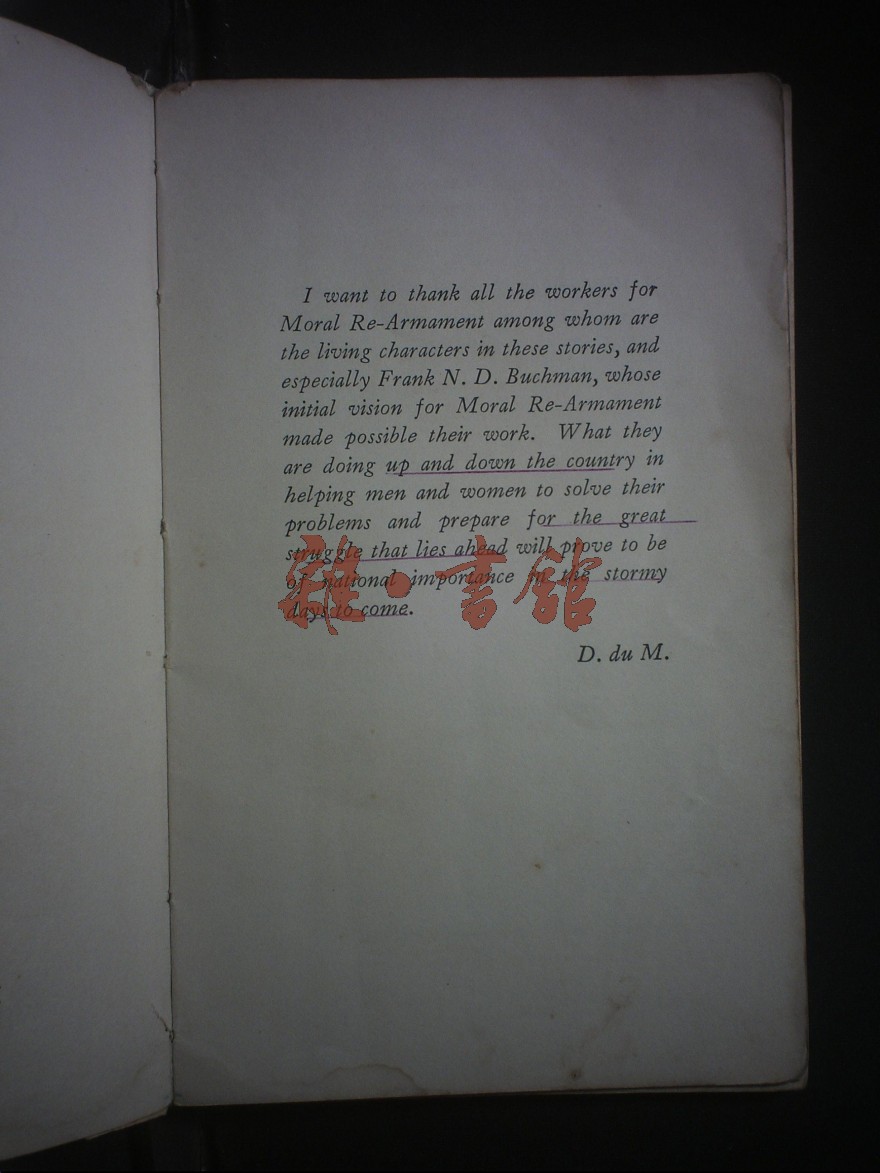 I want to thank all the workers for
Moral Re-Armament among whom are
the living characters in these stories, and
especially Frank N. D. Buchman, whose
initial vision for Moral Re-Armament
made possible their work. What they
are doing up and down the country in
helping men and women to solve their
problems and prepare for the great
struggle that lies ahead will prove to be
of national importance in the stormy
days to come.
D. du M.
雜·書館